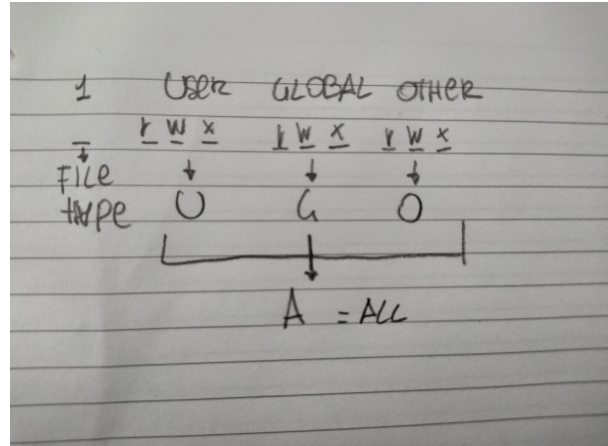 1 USER GLOBAL OTHER
_ r w x r w x r w x
FILE
TYPE U G O
A = ALL